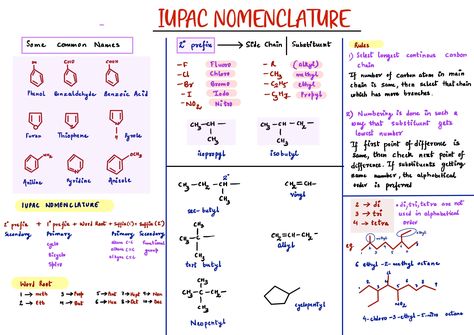 IUPAC NOMENCLATURE
Some Common Names
OH
CHO
COOH
Phenol Benzaldehyde Benzoic Acid
Furan Thiophene Pyrole
NH2
OCH3
Aniline Pyridine Anisole
IUPAC NOMENCLATURE
2° prefix + 1° prefix + Word Root + Suffix(1°) + Suffix(2°)
Secondary Primary Primary Secondary
cyclo
Bicyclo
Spiro
alkane C-C
alkene C=C
alkyne C≡C
functional
group
Word Root
1 → meth 3 → Prop 5 → Pent 7 → Hept 9 → Non
2 → Eth 4 → But 6 → Hex 8 → Oct 10 → Dec
2° prefix → Side Chain / Substituent
-F Fluoro
-Cl Chloro
-Br Bromo
-I Iodo
-NO2 Nitro
-R (alkyl)
-CH3 methyl
-C2H5 ethyl
-C3H7 Propyl
CH3-CH-
CH3
isopropyl
CH3-CH-CH2-
CH3
isobutyl
CH3-CH2-CH-
CH3
sec-butyl
CH2=CH-
vinyl
CH3
CH3-C-
CH3
tert butyl
CH2=CH-CH2-
allyl
CH3
CH3-C-CH2-
CH3
Neopentyl
cyclopentyl
Rules
1) Select longest continous carbon
chain
If number of carbon atom in main
chain is same, then select that chain
which has more branches.
2) Numbering is done in such a
way that substituent gets
lowest number
If first point of difference is
same, then check next point of
difference. If substituents getting
same number, the alphabetical
order is preferred
2 → di
3 → tri
4 → tetra
• di, tri, tetra are not
used in alphabetical
order
eg.
6 ethyl-2-methyl octane
4-chloro-3-ethyl-5-nitro octane